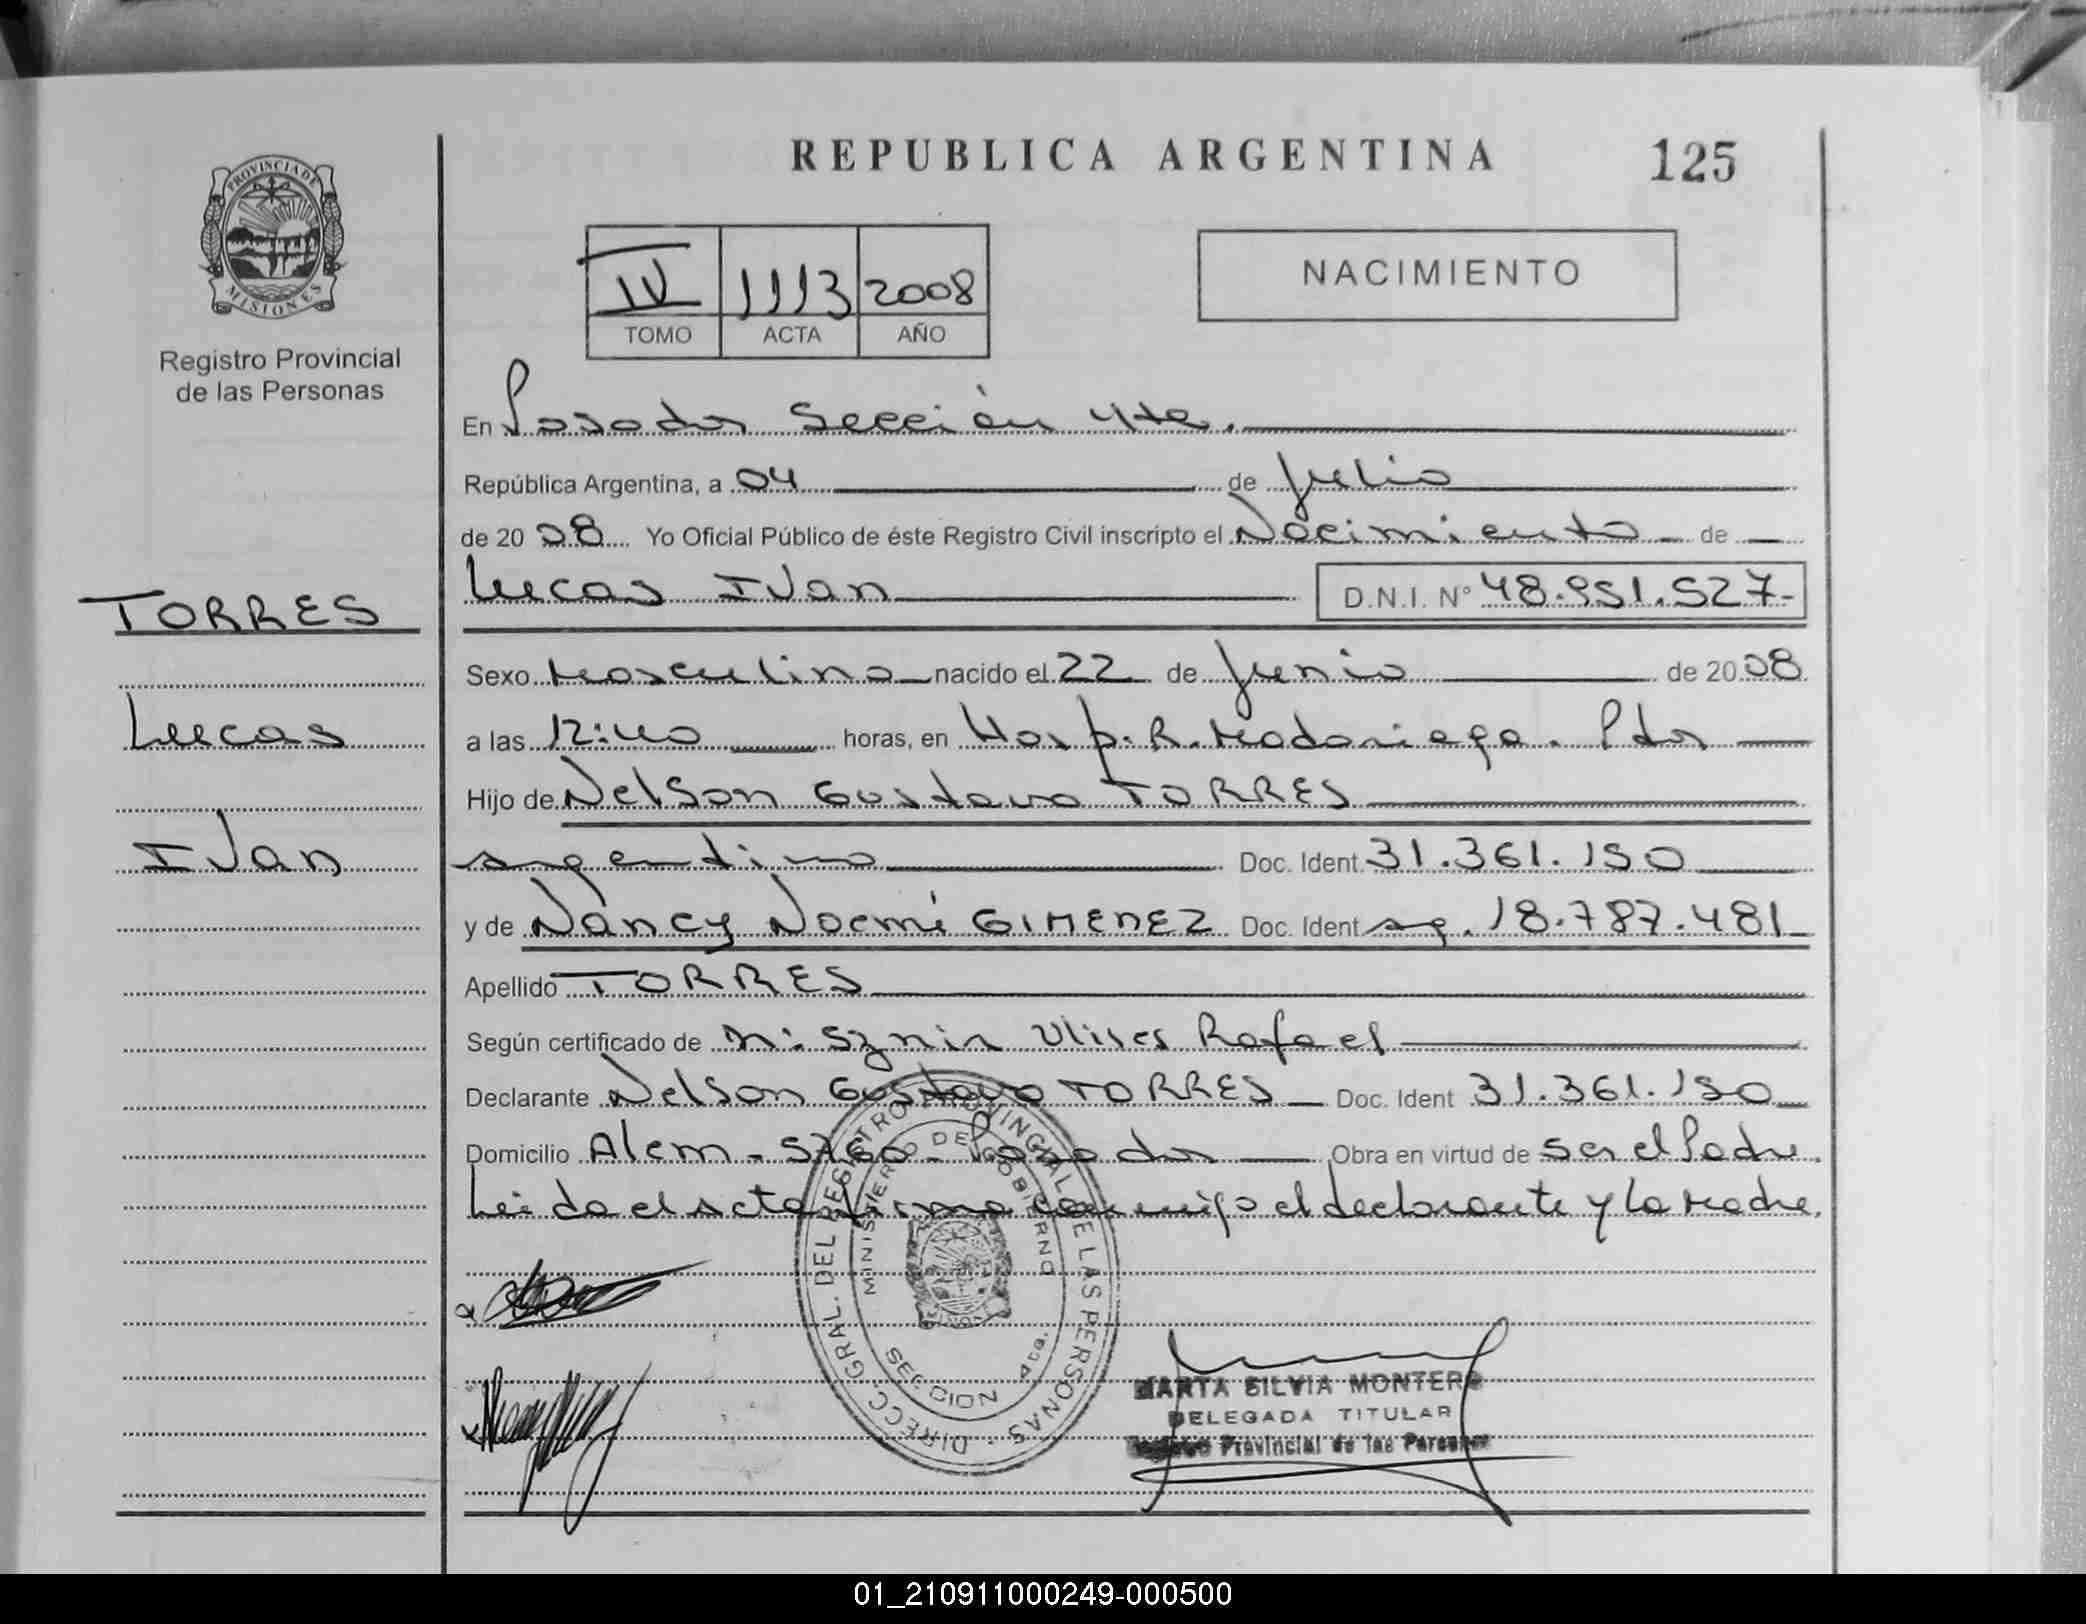 REPUBLICA ARGENTINA
125
PROVINCIA DE
MISIONES
Registro Provincial
de las Personas
IV 1113 2008
TOMO ACTA AÑO
NACIMIENTO
En Posadas Sección 4ta.
República Argentina, a 04 de Julio
de 2008 Yo Oficial Público de éste Registro Civil inscripto el Nacimiento de
Lucas Ivan D.N.I. N° 48.951.527-
TORRES
Lucas
Ivan
Sexo Masculino nacido el 22 de Junio de 2008
a las 12:40 horas, en Hosp. R. Madariaga. Pdas
Hijo de Nelson Gustavo TORRES
argentino Doc. Ident. 31.361.150
y de Nancy Noemí GIMENEZ Doc. Ident arg. 18.787.481
Apellido TORRES
Según certificado de Ulises Rafael
Declarante Nelson Gustavo TORRES Doc. Ident 31.361.150
Domicilio Alem - 5760 - Posadas Obra en virtud de ser el Padre.
Leída el acta firma conmigo el declarante y la Madre.
DIRECC. GRAL. DEL REGISTRO PROVINCIAL DE LAS PERSONAS
MINISTERIO DE GOBIERNO
SECCION 4ta.
MARTA SILVIA MONTERO
DELEGADA TITULAR
Registro Provincial de las Personas
01_210911000249-000500